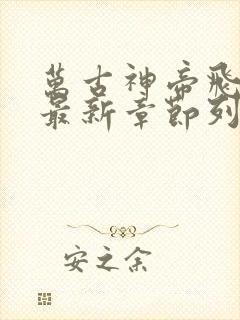 萬古神帝飛
最新章節列
安之余